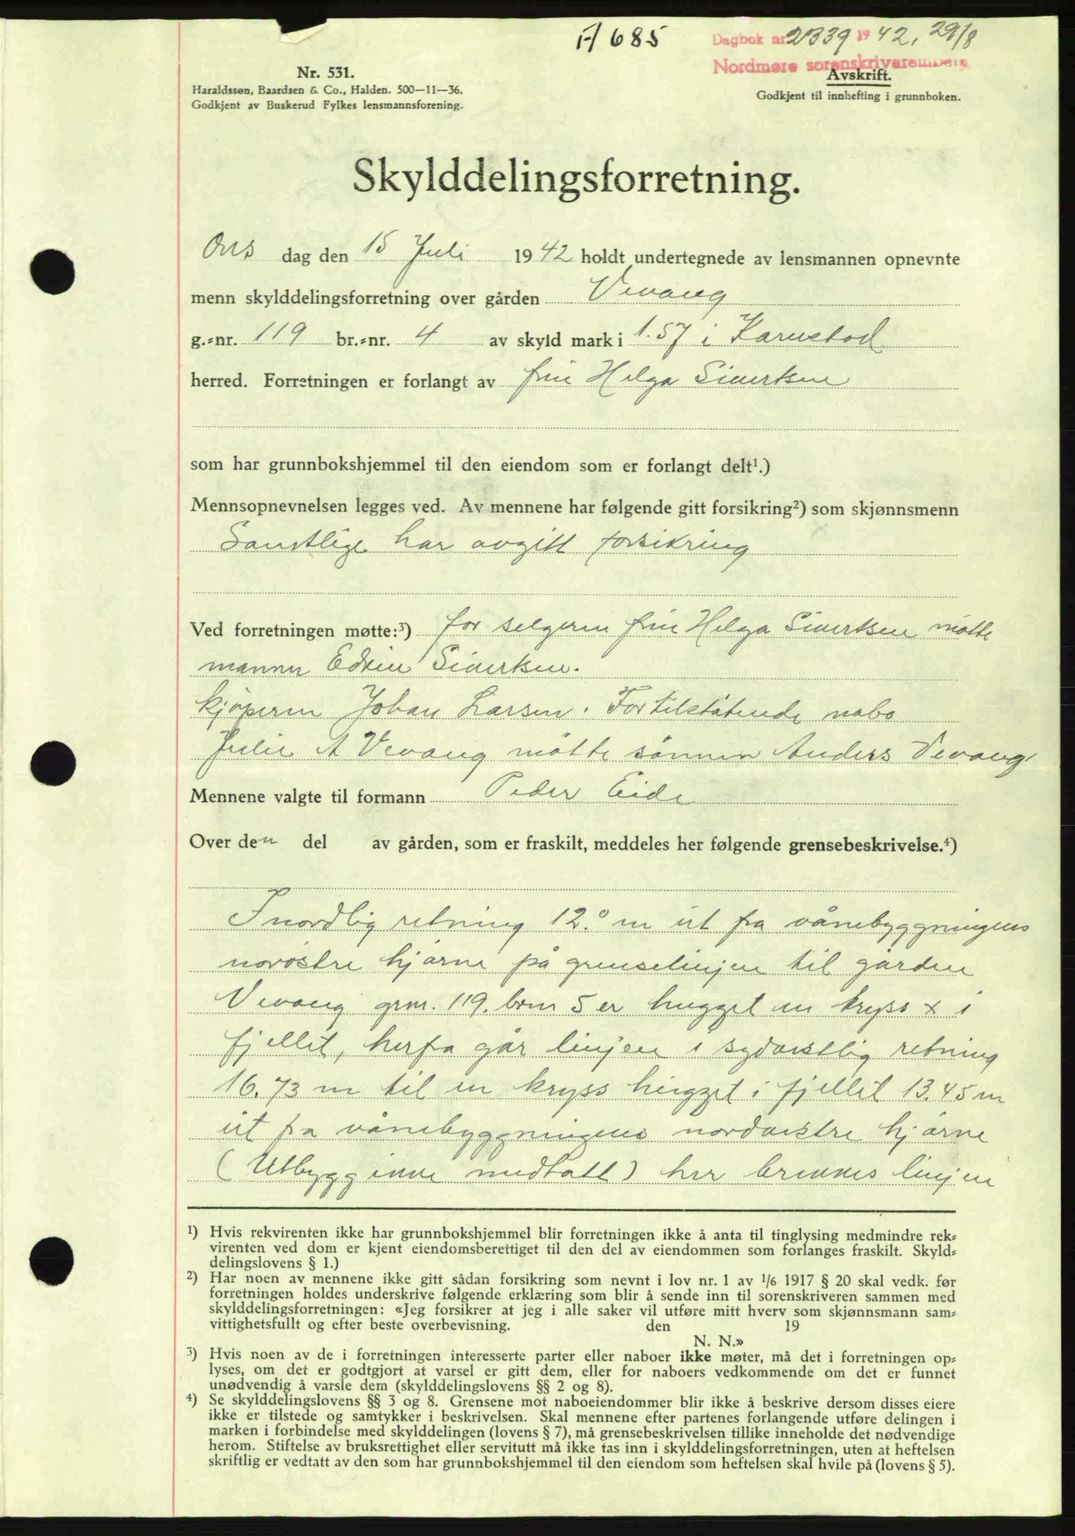 A 685
Dagbok nr. 2339 1942, 29/8
Nordmøre sorenskriverembete
Nr. 531.
Haraldssen, Baardsen & Co., Halden. 500—11—36.
Godkjent av Buskerud Fylkes lensmannsforening.
Avskrift.
Godkjent til innhefting i grunnboken.
Skylddelingsforretning.
Ons dag den 15 Juli 1942 holdt undertegnede av lensmannen opnevnte
menn skylddelingsforretning over gården Vevang
g.=nr. 119 br.=nr. 4 av skyld mark i 1.57 i Karnstad
herred. Forretningen er forlangt av fru Helga Sivertsen
som har grunnbokshjemmel til den eiendom som er forlangt delt¹.)
Mennsopnevnelsen legges ved. Av mennene har følgende gitt forsikring²) som skjønnsmenn
Samtlige har avgitt forsikring
Ved forretningen møtte:³) for selgeren fru Helga Sivertsen møtte
mannen Edvin Sivertsen.
kjøperen Johan Larsen. For tilstøtende nabo
Julie A Vevang møtte sønnen Anders Vevang
Mennene valgte til formann Peder Eide
Over den del av gården, som er fraskilt, meddeles her følgende grensebeskrivelse.⁴)
I nordlig retning 12.0 m ut fra vånebyggningens
norøstre hjørne på grenselinjen til gården
Vevang grnr. 119. brnr 5 er hugget en kryss x i
fjellet, herfra går linjen i sydøstlig retning
16.73 m til en kryss hugget i fjellet 13.45 m
ut fra vånebyggningens nordøstre hjørne
(Utbygg inne medtatt) her brekkes linjen
¹) Hvis rekvirenten ikke har grunnbokshjemmel blir forretningen ikke å anta til tinglysing medmindre rek=
virenten ved dom er kjent eiendomsberettiget til den del av eiendommen som forlanges fraskilt. Skyld=
delingslovens § 1.)
²) Har noen av mennene ikke gitt sådan forsikring som nevnt i lov nr. 1 av 1/6 1917 § 20 skal vedk. før
forretningen holdes underskrive følgende erklæring som blir å sende inn til sorenskriveren sammen med
skylddelingsforretningen: «Jeg forsikrer at jeg i alle saker vil utføre mitt hverv som skjønnsmann sam=
vittighetsfullt og efter beste overbevisning. den 19
N. N.»
³) Hvis noen av de i forretningen interesserte parter eller naboer ikke møter, må det i forretningen op=
lyses, om det er godtgjort at varsel er gitt dem, eller for naboers vedkommende om det er funnet
unødvendig å varsle dem (skylddelingslovens §§ 2 og 8).
⁴) Se skylddelingslovens §§ 3 og 8. Grensene mot naboeiendommer blir ikke å beskrive dersom disses eiere
ikke er tilstede og samtykker i beskrivelsen. Skal mennene efter partenes forlangende utføre delingen i
marken i forbindelse med skylddelingen (lovens § 7), må grensebeskrivelsen tillike inneholde det nødvendige
herom. Stiftelse av bruksrettighet eller servitutt må ikke tas inn i skylddelingsforretningen, uten at heftelsen
skriftlig er vedtatt av den som har grunnbokshjemmel til den eiendom som heftelsen skal hvile på (lovens § 5).